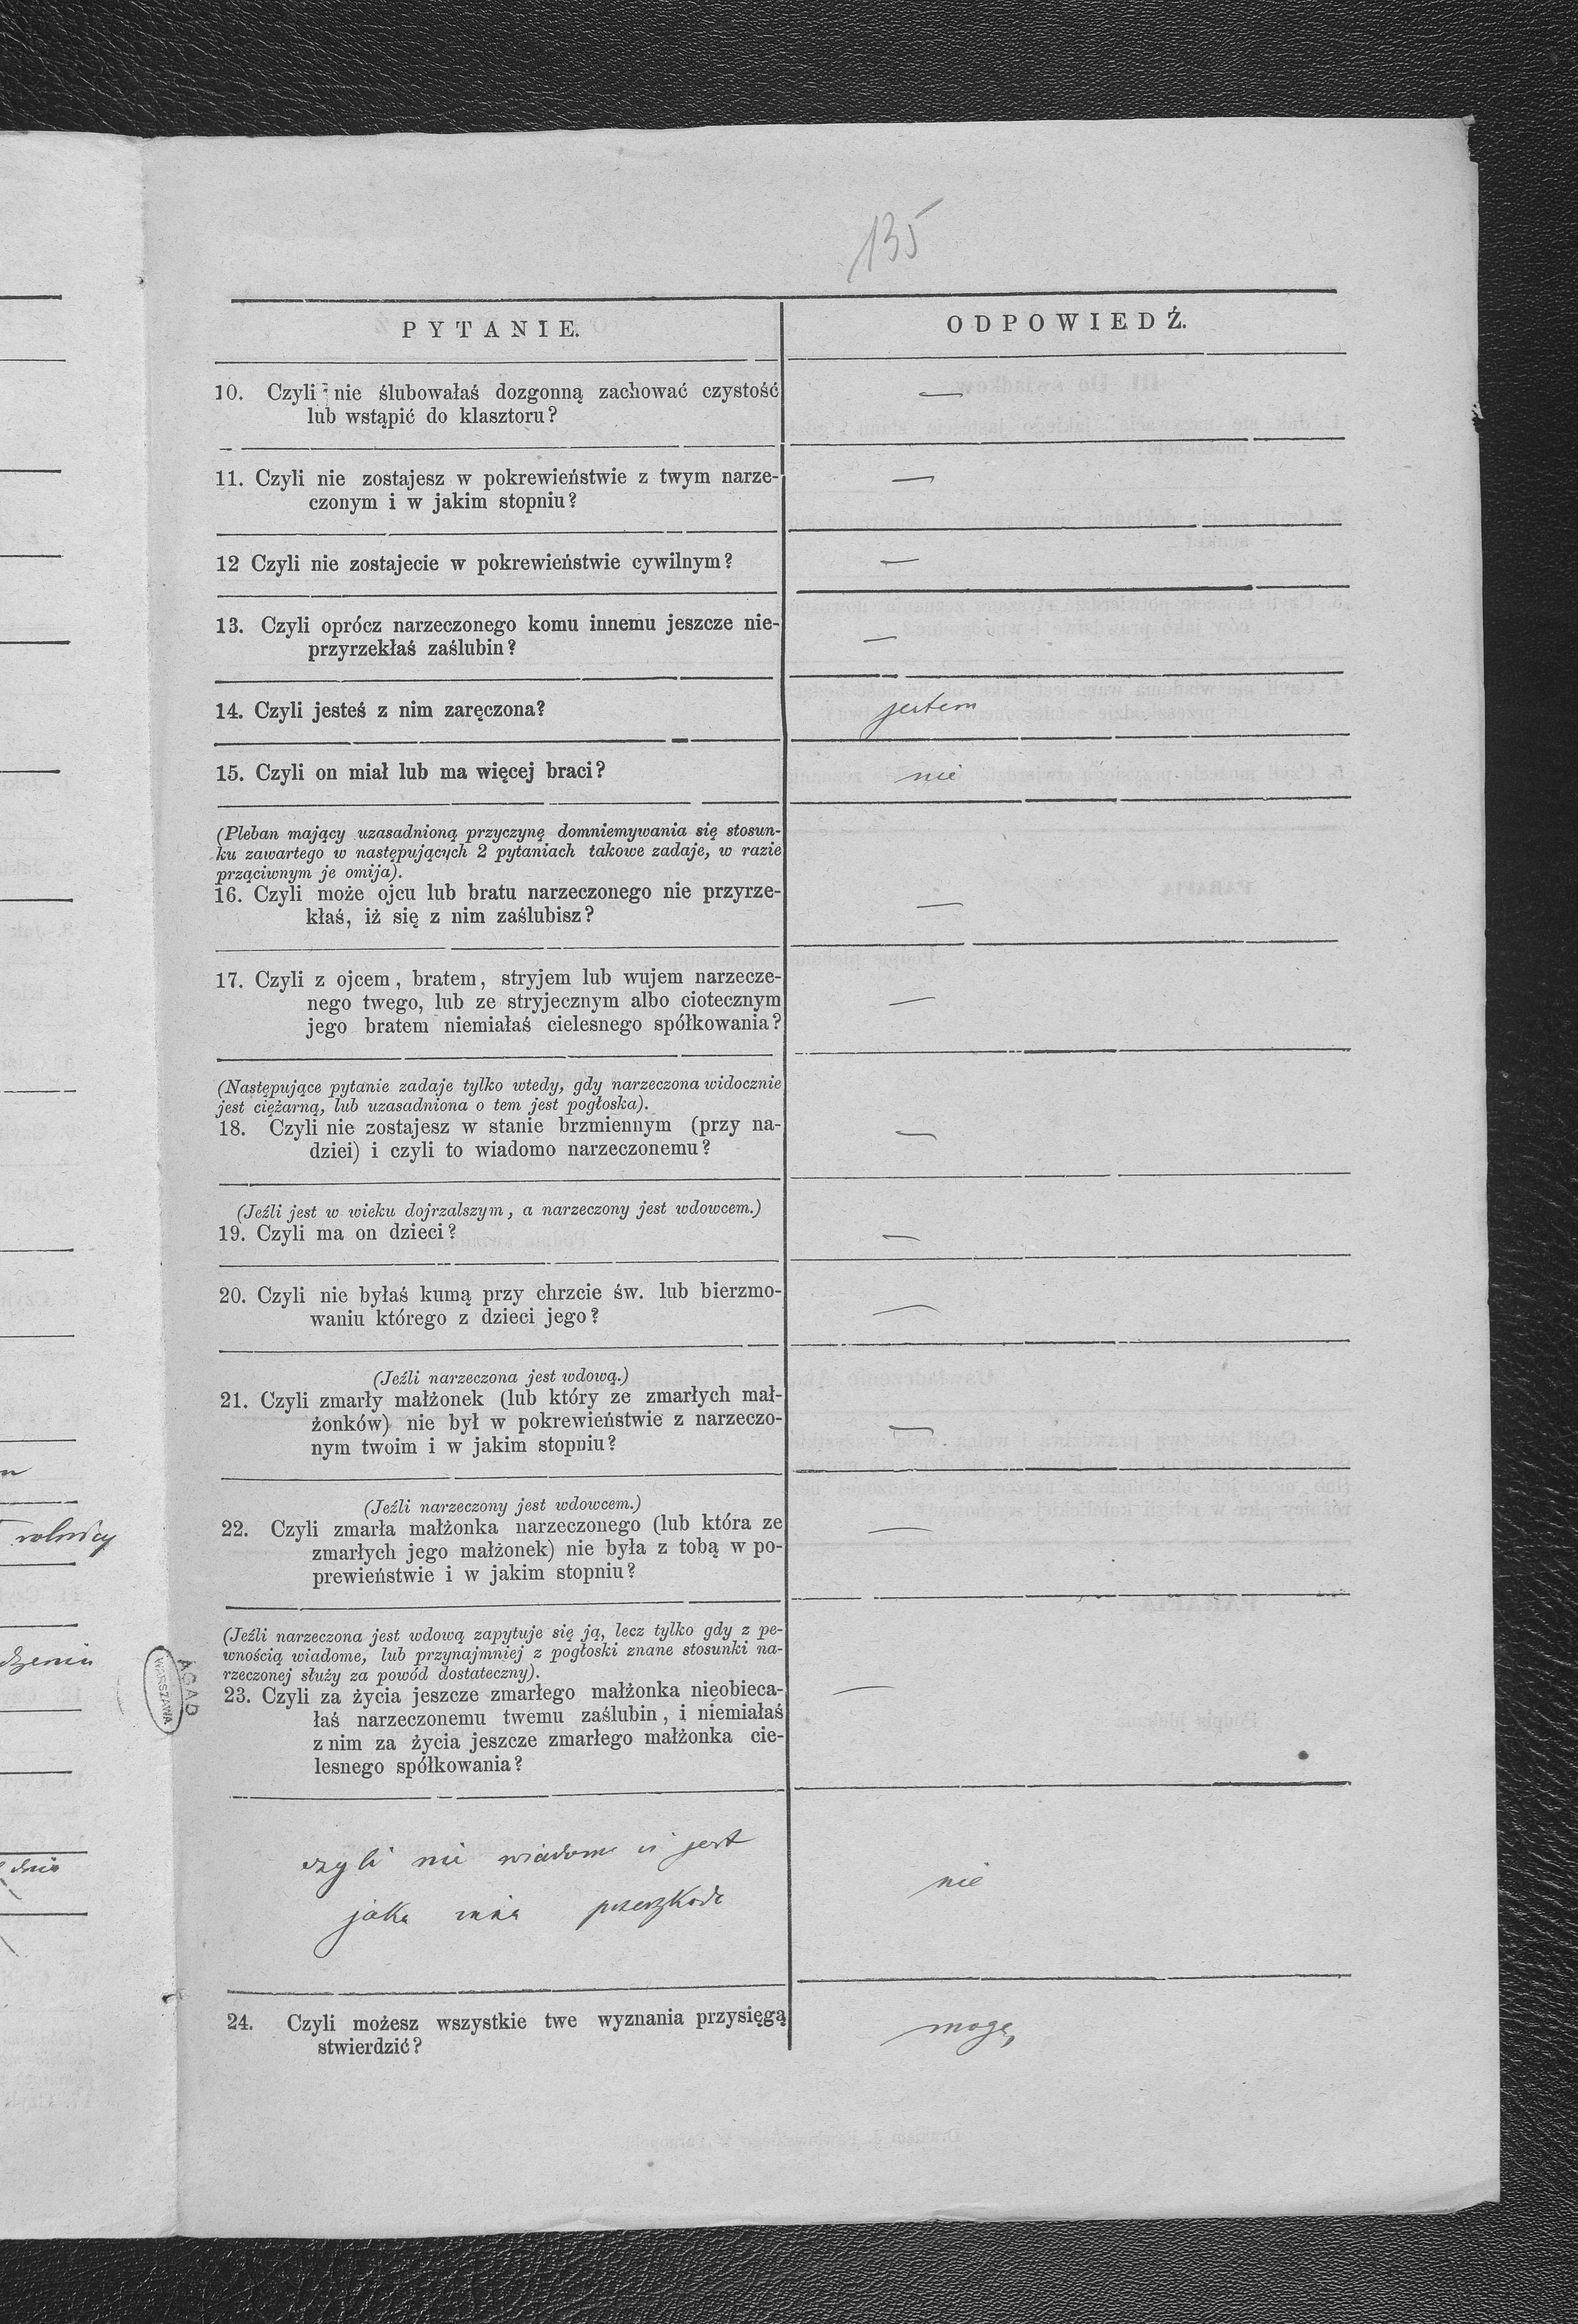 135
PYTANIE.
ODPOWIEDŹ.
10. Czyli nie ślubowałaś dozgonną zachować czystość
lub wstąpić do klasztoru?
—
11. Czyli nie zostajesz w pokrewieństwie z twym narze-
czonym i w jakim stopniu?
—
12 Czyli nie zostajecie w pokrewieństwie cywilnym?
—
13. Czyli oprócz narzeczonego komu innemu jeszcze nie-
przyrzekłaś zaślubin?
—
14. Czyli jesteś z nim zaręczona?
jestem
15. Czyli on miał lub ma więcej braci?
nie
(Pleban mający uzasadnioną przyczynę domniemywania się stosun-
ku zawartego w następujących 2 pytaniach takowe zadaje, w razie
prząciwnym je omija).
16. Czyli może ojcu lub bratu narzeczonego nie przyrze-
kłaś, iż się z nim zaślubisz?
—
17. Czyli z ojcem, bratem, stryjem lub wujem narzecze-
nego twego, lub ze stryjecznym albo ciotecznym
jego bratem niemiałaś cielesnego spółkowania?
—
(Następujące pytanie zadaje tylko wtedy, gdy narzeczona widocznie
jest ciężarną, lub uzasadniona o tem jest pogłoska).
18. Czyli nie zostajesz w stanie brzmiennym (przy na-
dziei) i czyli to wiadomo narzeczonemu?
—
(Jeźli jest w wieku dojrzalszym, a narzeczony jest wdowcem.)
19. Czyli ma on dzieci?
—
20. Czyli nie byłaś kumą przy chrzcie św. lub bierzmo-
waniu którego z dzieci jego?
—
(Jeźli narzeczona jest wdową.)
21. Czyli zmarły małżonek (lub który ze zmarłych mał-
żonków) nie był w pokrewieństwie z narzeczo-
nym twoim i w jakim stopniu?
—
(Jeźli narzeczony jest wdowcem.)
22. Czyli zmarła małżonka narzeczonego (lub która ze
zmarłych jego małżonek) nie była z tobą w po-
prewieństwie i w jakim stopniu?
—
(Jeźli narzeczona jest wdową zapytuje się ją, lecz tylko gdy z pe-
wnością wiadome, lub przynajmniej z pogłoski znane stosunki na-
rzeczonej służy za powód dostateczny).
23. Czyli za życia jeszcze zmarłego małżonka nieobieca-
łaś narzeczonemu twemu zaślubin, i niemiałaś
z nim za życia jeszcze zmarłego małżonka cie-
lesnego spółkowania?
—
czyli nie wiadome ci jest
jaka inna przeszkoda
nie
24. Czyli możesz wszystkie twe wyznania przysięgą
stwierdzić?
mogę
AGAD
WARSZAWA
rolnicy